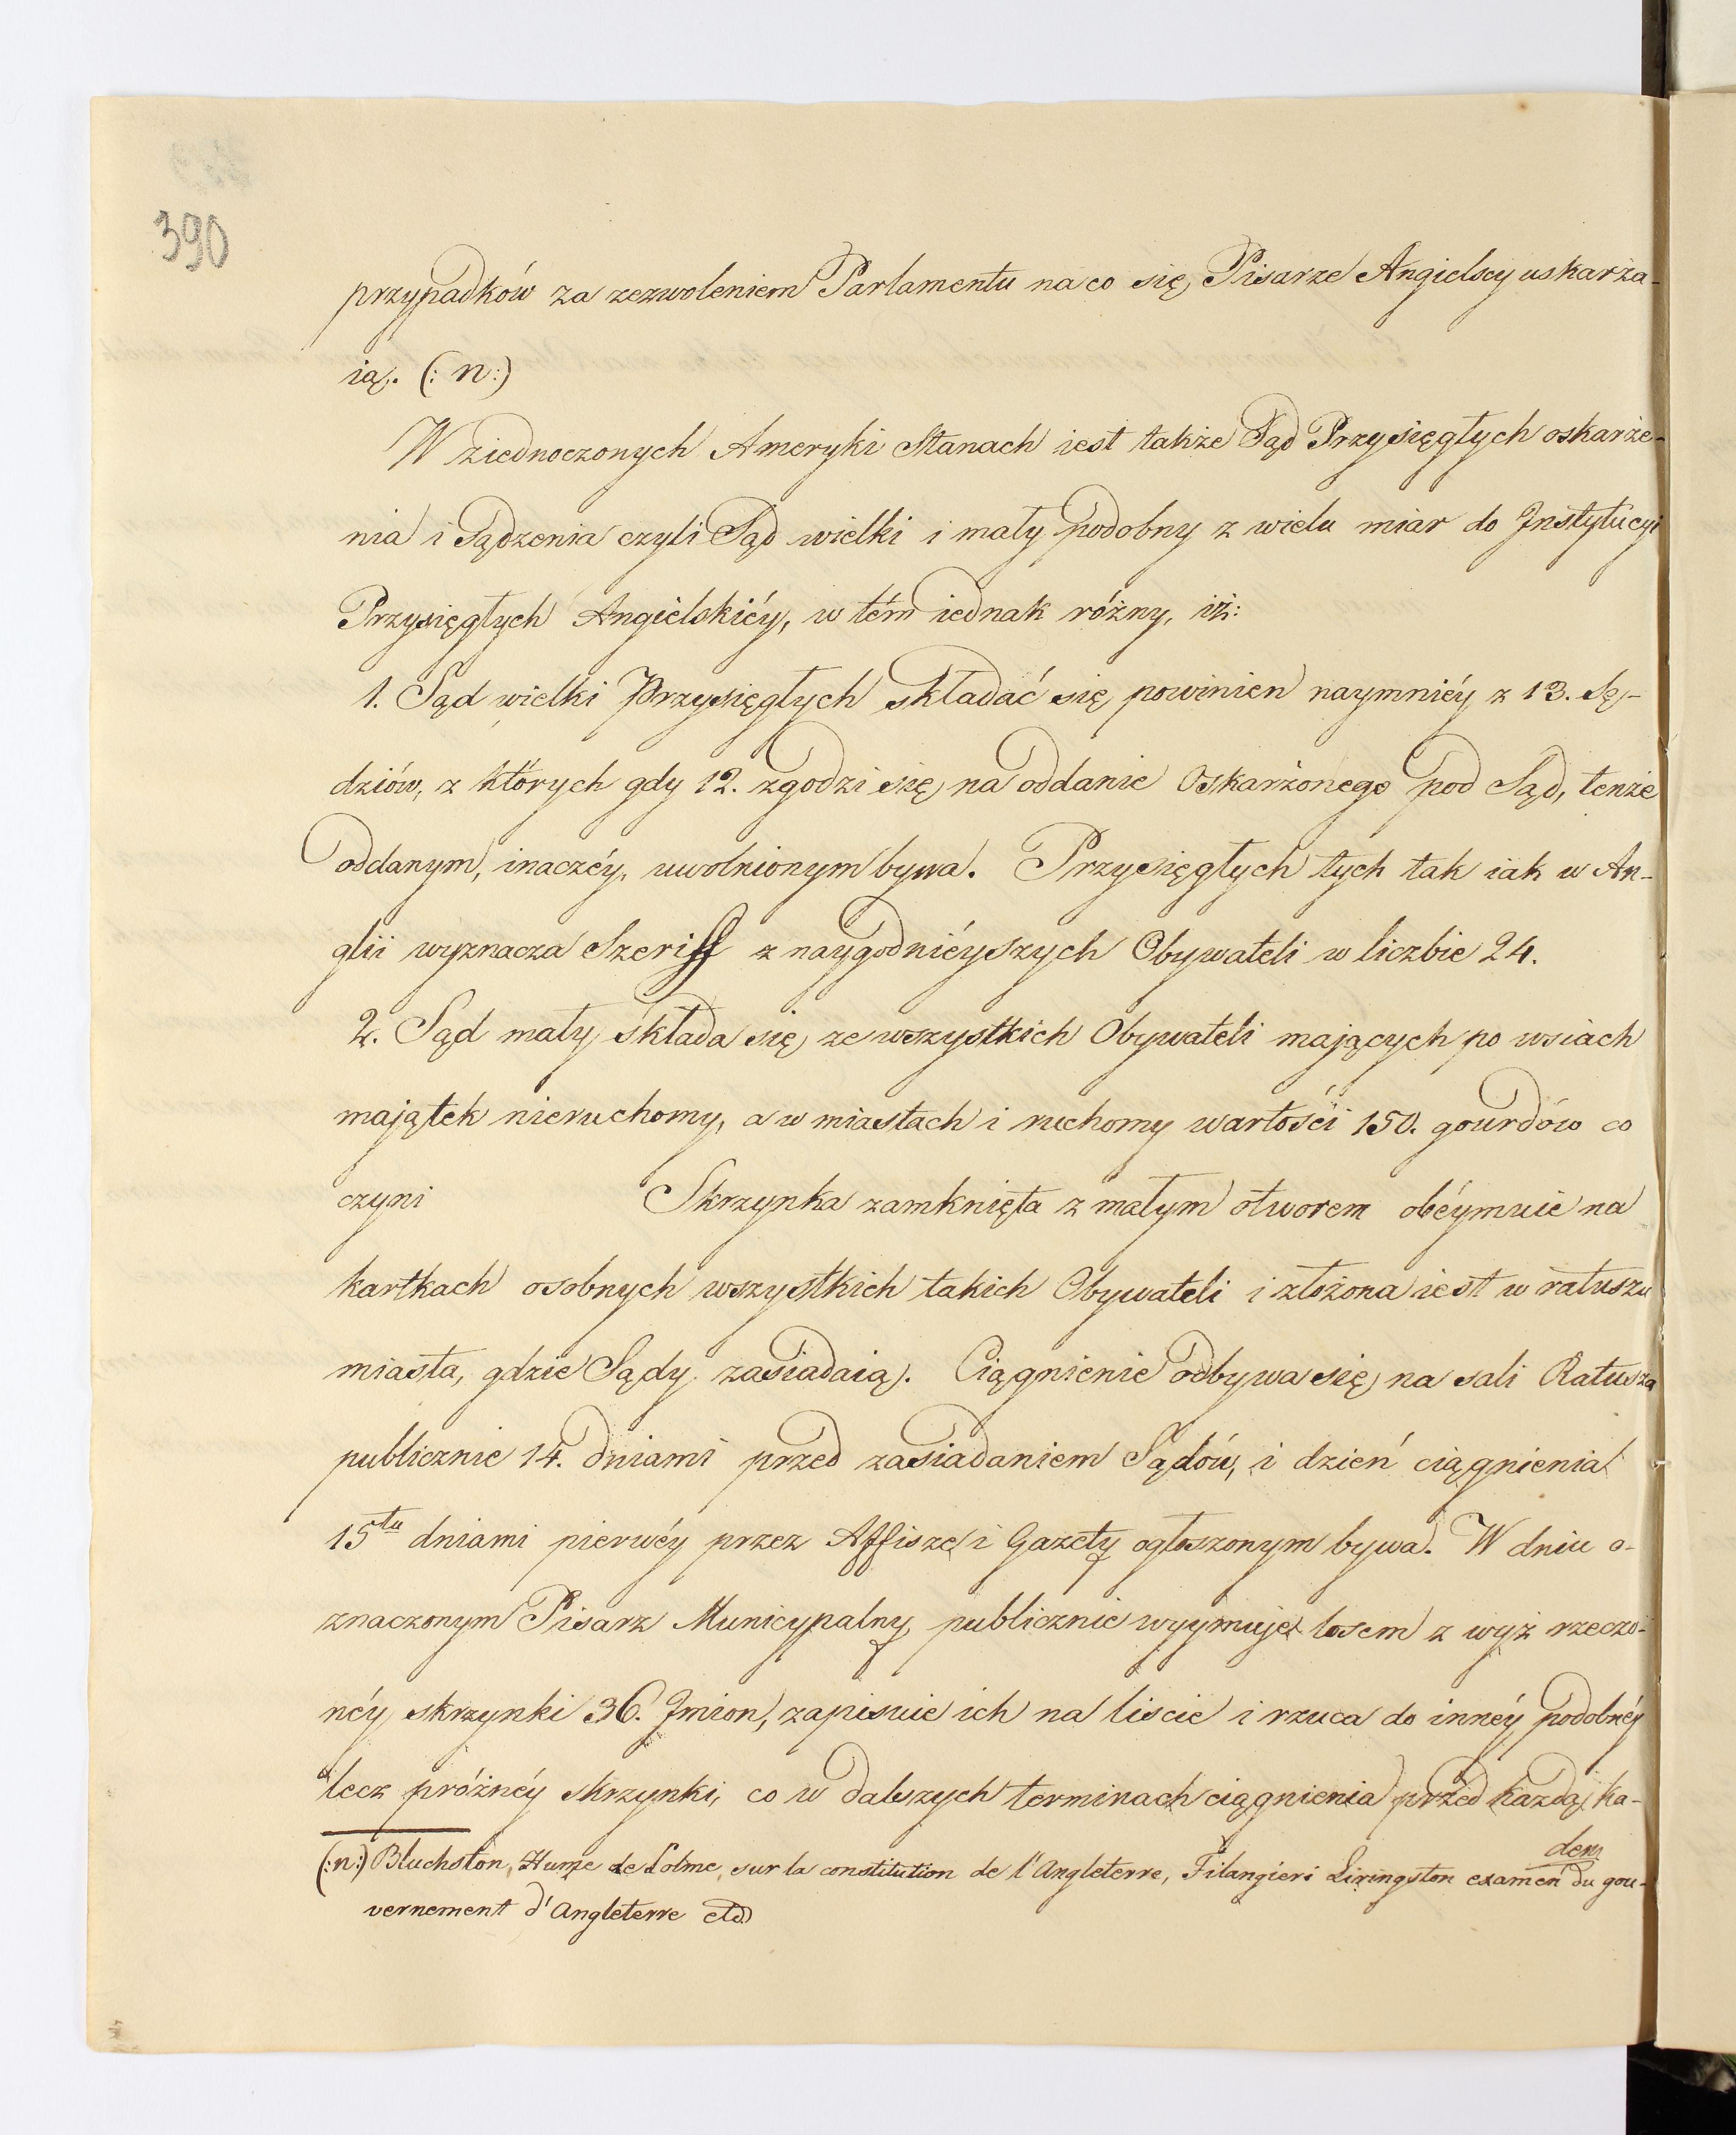 390
przypadków za zezwoleniem Parlamentu na co się Pisarze Angielscy uskarża-
ią. (: n:)
W ziednoczonych Ameryki Stanach iest także Sąd Przysięgłych oskarże-
nia i Sądzenia czyli Sąd wielki i mały podobny z wielu miar do Instytucyi
Przysięgłych Angielskiéy, w tém iednak różny, iż:
1. Sąd wielki Przysięgłych składać się powinien naymniéy z 13. Sę-
dziów, z których gdy 12. zgodzi się na oddanie Oskarżonego pod Sąd, tenże
oddanym, inaczéy uwolnionym bywa. Przysięgłych tych tak iak w An-
glii wyznacza Szeriff z naygodniéyszych Obywateli w liczbie 24.
2. Sąd mały składa się ze wszystkich Obywateli mających po wsiach
majątek nieruchomy, a w miastach i ruchomy wartości 150. gourdów co
czyni Skrzynka zamknięta z małym otworem obéymuie na
kartkach osobnych wszystkich takich Obywateli i złożona iest w ratuszu
miasta, gdzie Sądy zasiadaią. Ciągnienie odbywa się na sali Ratusza
publicznie 14. dniami przed zasiadaniem Sądów, i dzień ciągnienia
15tu dniami pierwéy przez Affisze i Gazety ogłoszonym bywa. W dniu o-
znaczonym Pisarz Municypalny publicznie wyymuje losem z wyż rzeczo-
néy skrzynki 36. Jmion, zapisuie ich na liscie i rzuca do innéy podobnéy
lecz próżnéy skrzynki, co w dalszych terminach ciągnienia przed każdą ka-
den
(:n:) Bluchston, Hume de Lolme, sur la constitution de l'Angleterre, Filangieri Livingston examen du gou-
vernement d'Angleterre etc